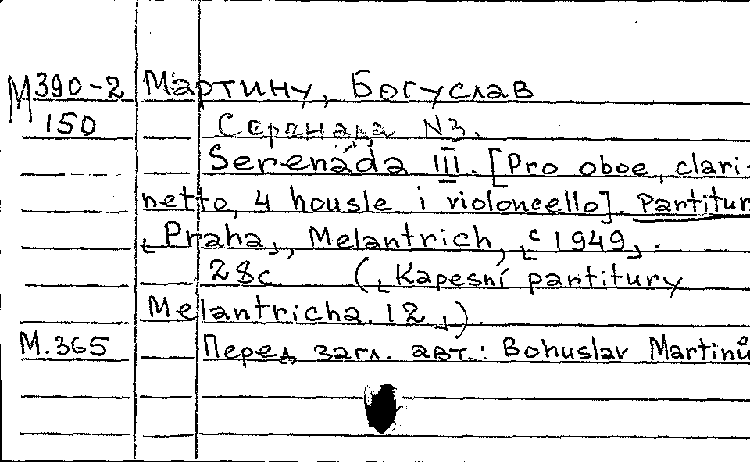 М 390-2 Мартину, Богуслав
150 Серенада N3.
Serenáda III. [Pro oboe, clari-
netto, 4 housle i violoncello]. Partitur
⌞Praha⌟, Melantrich, ⌞c 1949⌟.
28с (⌞Kapesní partitury
Melantricha. 12⌟).
М.365 Перед загл. авт.: Bohuslav Martinů